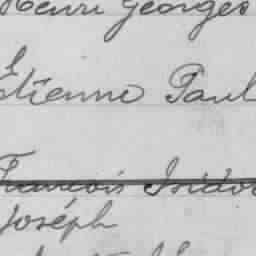 Henri Georges
Etienne Paul
François Isidor
Joséph